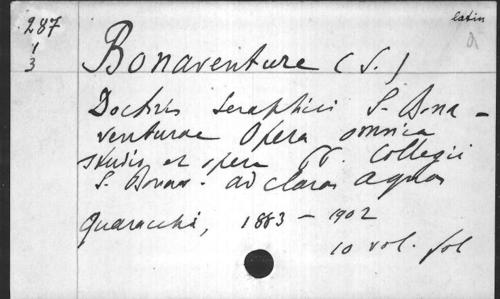 latin
287
1
3
a
Bonaventure (S.)
Doctoris Seraphici S. Bona-
venturae Opera omnia
studio et opera PP. Collegii
S. Bonav. ad claras aquas
Quaracchi, 1883 - 1902
10 vol. fol